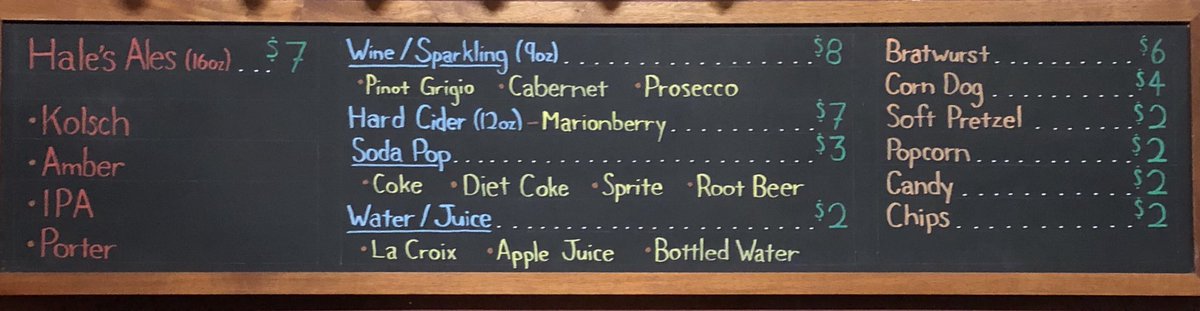 Hale's Ales (16oz)...$7
·Kolsch
·Amber
·IPA
·Porter
Wine/Sparkling (9oz)..............................$8
·Pinot Grigio ·Cabernet ·Prosecco
Hard Cider (12oz) - Marionberry..................$7
Soda Pop........................................$3
·Coke ·Diet Coke ·Sprite ·Root Beer
Water/Juice....................................$2
·La Croix ·Apple Juice ·Bottled Water
Bratwurst..............$6
Corn Dog..............$4
Soft Pretzel..........$2
Popcorn...............$2
Candy.................$2
Chips.................$2